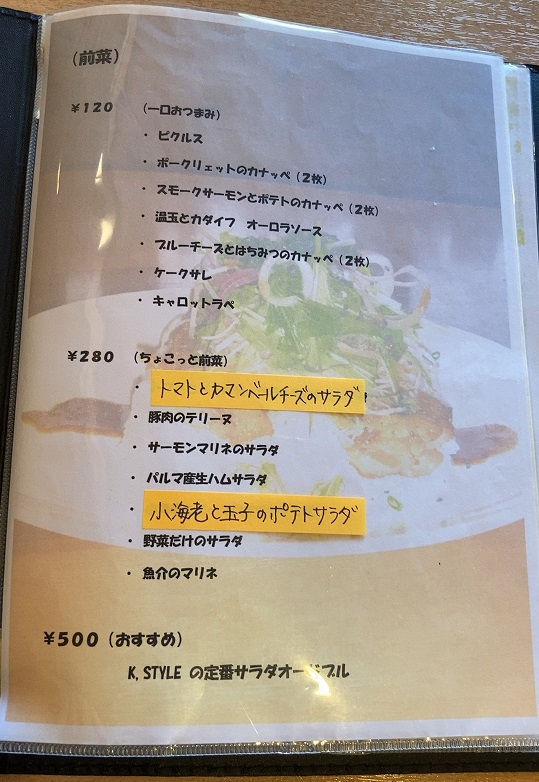 (前菜)
¥120 (一口おつまみ)
・ピクルス
・ポークリエットのカナッペ(2枚)
・スモークサーモンとポテトのカナッペ(2枚)
・温玉とカダイフ オーロラソース
・ブルーチーズとはちみつのカナッペ(2枚)
・ケークサレ
・キャロットラペ
¥280 (ちょこっと前菜)
・トマトとカマンベールチーズのサラダ
・豚肉のテリーヌ
・サーモンマリネのサラダ
・パルマ産生ハムサラダ
・小海老と玉子のポテトサラダ
・野菜だけのサラダ
・魚介のマリネ
¥500(おすすめ)
K, STYLE の定番サラダオードブル